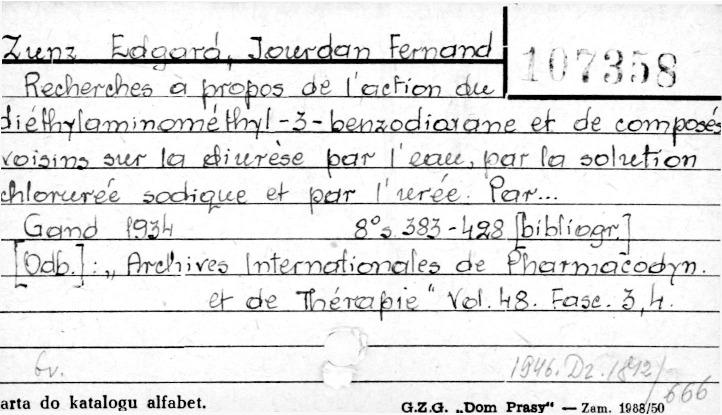 Zunz Edgard, Jourdan Fernand
107358
Recherches à propos de l'action du
diéthylaminométhyl-3-benzodioxane et de composés
voisins sur la diurèse par l'eau, par la solution
chlorurée sodique et par l'urée. Par...
Gand 1934 8° s. 383-428 [bibliogr.]
[Odb.]: „Archives Internationales de Pharmacodyn.
et de Thérapie" Vol. 48. Fasc. 3,4.
br.
1946. Dz. 1812/
666
arta do katalogu alfabet.
G.Z.G. „Dom Prasy" — Zam. 1988/50